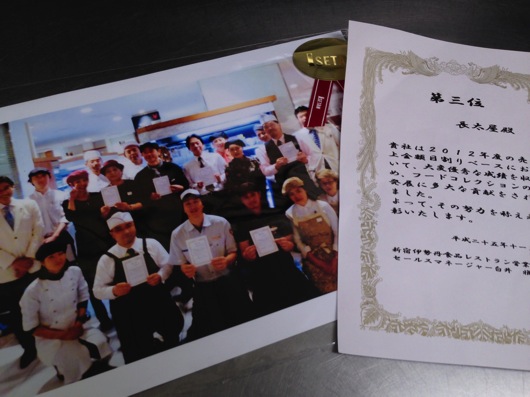 SET
第三位
長太屋殿
貴社は2012年度の売
上金額目割りベースにお
いて、大変優秀な成績を収
め、フードコレクションの
発展に多大な貢献をされ
ました。
よって、その努力を称え
彰いたします。
平成二十五年十一
新宿伊勢丹食品レストラン営業
セールスマネージャー白井